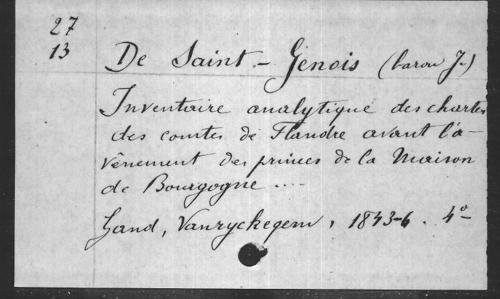 27
13
De Saint-Genois (baron J.)
Inventaire analytique des chartes
des comtes de Flandre avant l'a-
vènement des princes de la Maison
de Bourgogne ....
Gand, Vanryckegem, 1843-6. 4º